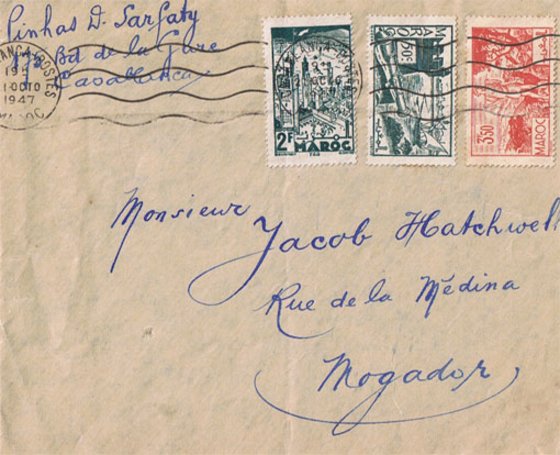 Pinhas D. Sarfaty
175 Bd de la Gare
Casablanca
1947
2F
MAROC
MAROC
50c
MAROC
3.50
Monsieur
Jacob Hatchwell
Rue de la Médina
Mogador